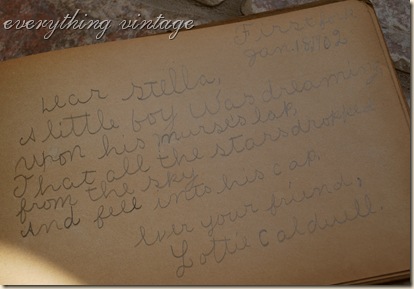 everything vintage
Dear Stella,
A little boy was dreaming,
Upon his nurse's lap,
That all the stars dropped
from the sky
And fell into his cap.
Ever your friend,
Lottie Caldwell.